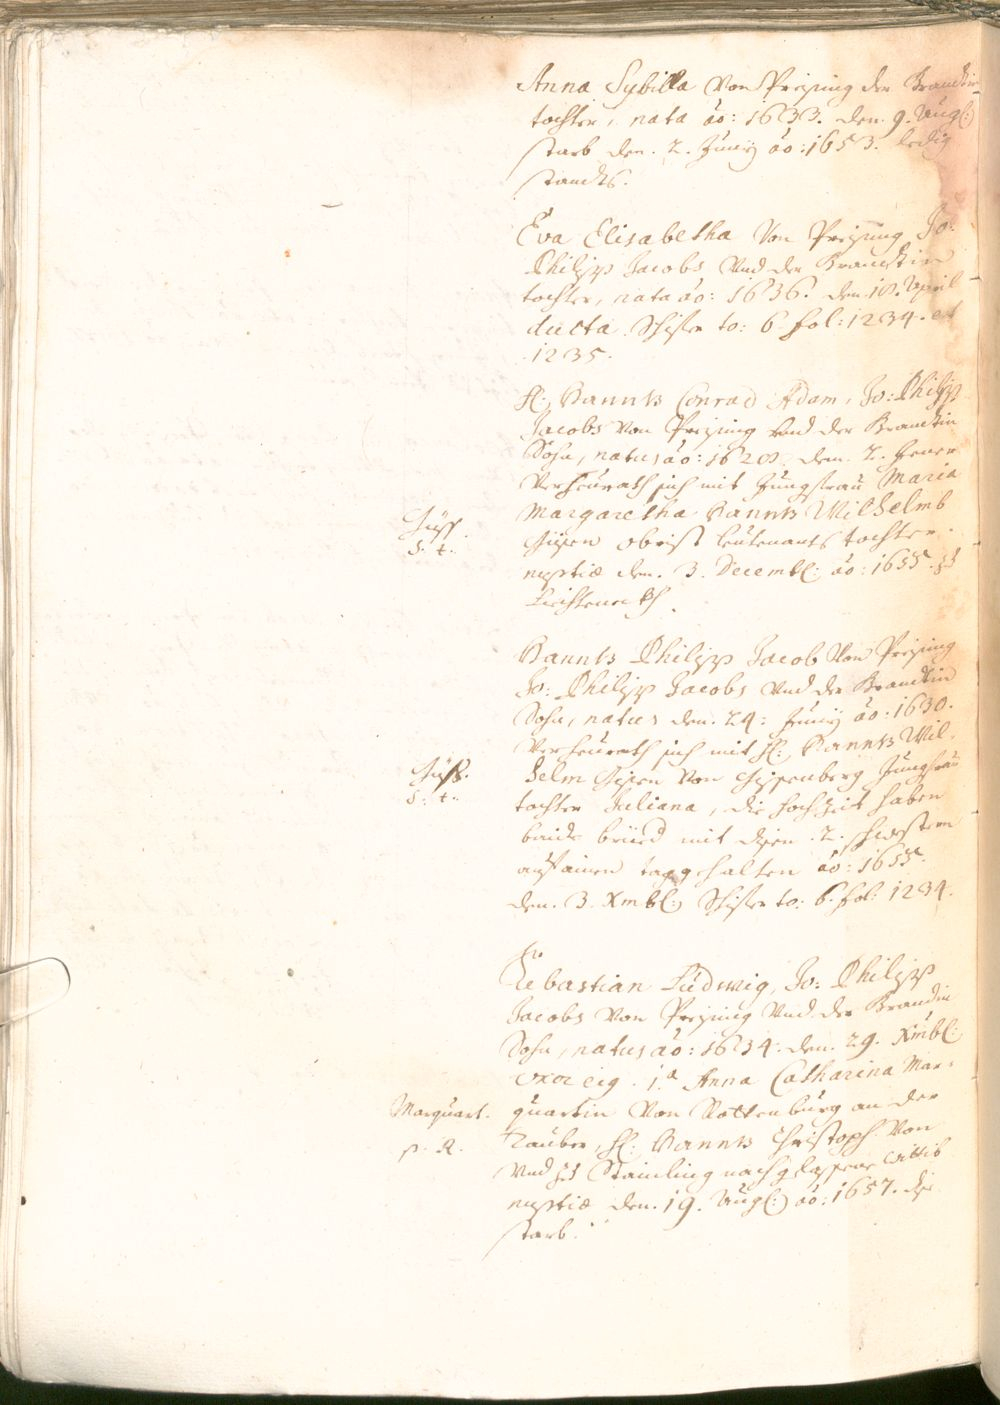 Anna Sybilla von Preysing der Brandtin
tochter, nata ao: 1633. den. 9. Aug(:)
starb den. 2. Juny ao: 1653. ledig
standts.
Eva Elisabetha von Preysing Jo:
Philipp Jacobs vnd der Brandtin
tochter, nata ao: 1636. den. 18. April
ducta to: 6. fol: 1234. et
1235.
H: Hannß Conrad Adam, Jo: Philipp
Jacobs von Preysing vnd der Brandtin
Sohn, natus ao: 1628. den. 2. Jener
verheurath sich mit Jungfrau Maria
Margaretha Hannß Wilhelmb
obrist leutenants tochter
nuptiæ den. 3. Decemb(: ao: 1655. zu
s. t.
Hannß Philipp Jacob von Preysing
Jo: Philipp Jacobs vnd der Brandtin
Sohn, natus den. 24: Juny ao: 1630.
verheurath sich mit H: Hannß Wil-
helm von Jungfrau
s. t.
tochter Juliana, die hochzeit haben
baide brüed mit disen .2. schwestern
auf ainen tag gehalten ao: 1655.
den. 3. Xmb(: to: 6. fol: 1234.
Sebastian Ludwig, Jo: Philipp
Jacobs von Preysing vnd der Brandtin
Sohn, natus ao: 1634. den. 29. Xmb(:
uxor eig. 1.a Anna Catharina Mar-
Marquart. quartin von Rottenburg an der
Tauber, H: Hannß Christoph von
vnd zu Stainling nachglassene wittib
nuptiæ den. 19. Aug(:) ao: 1657. die
starb.